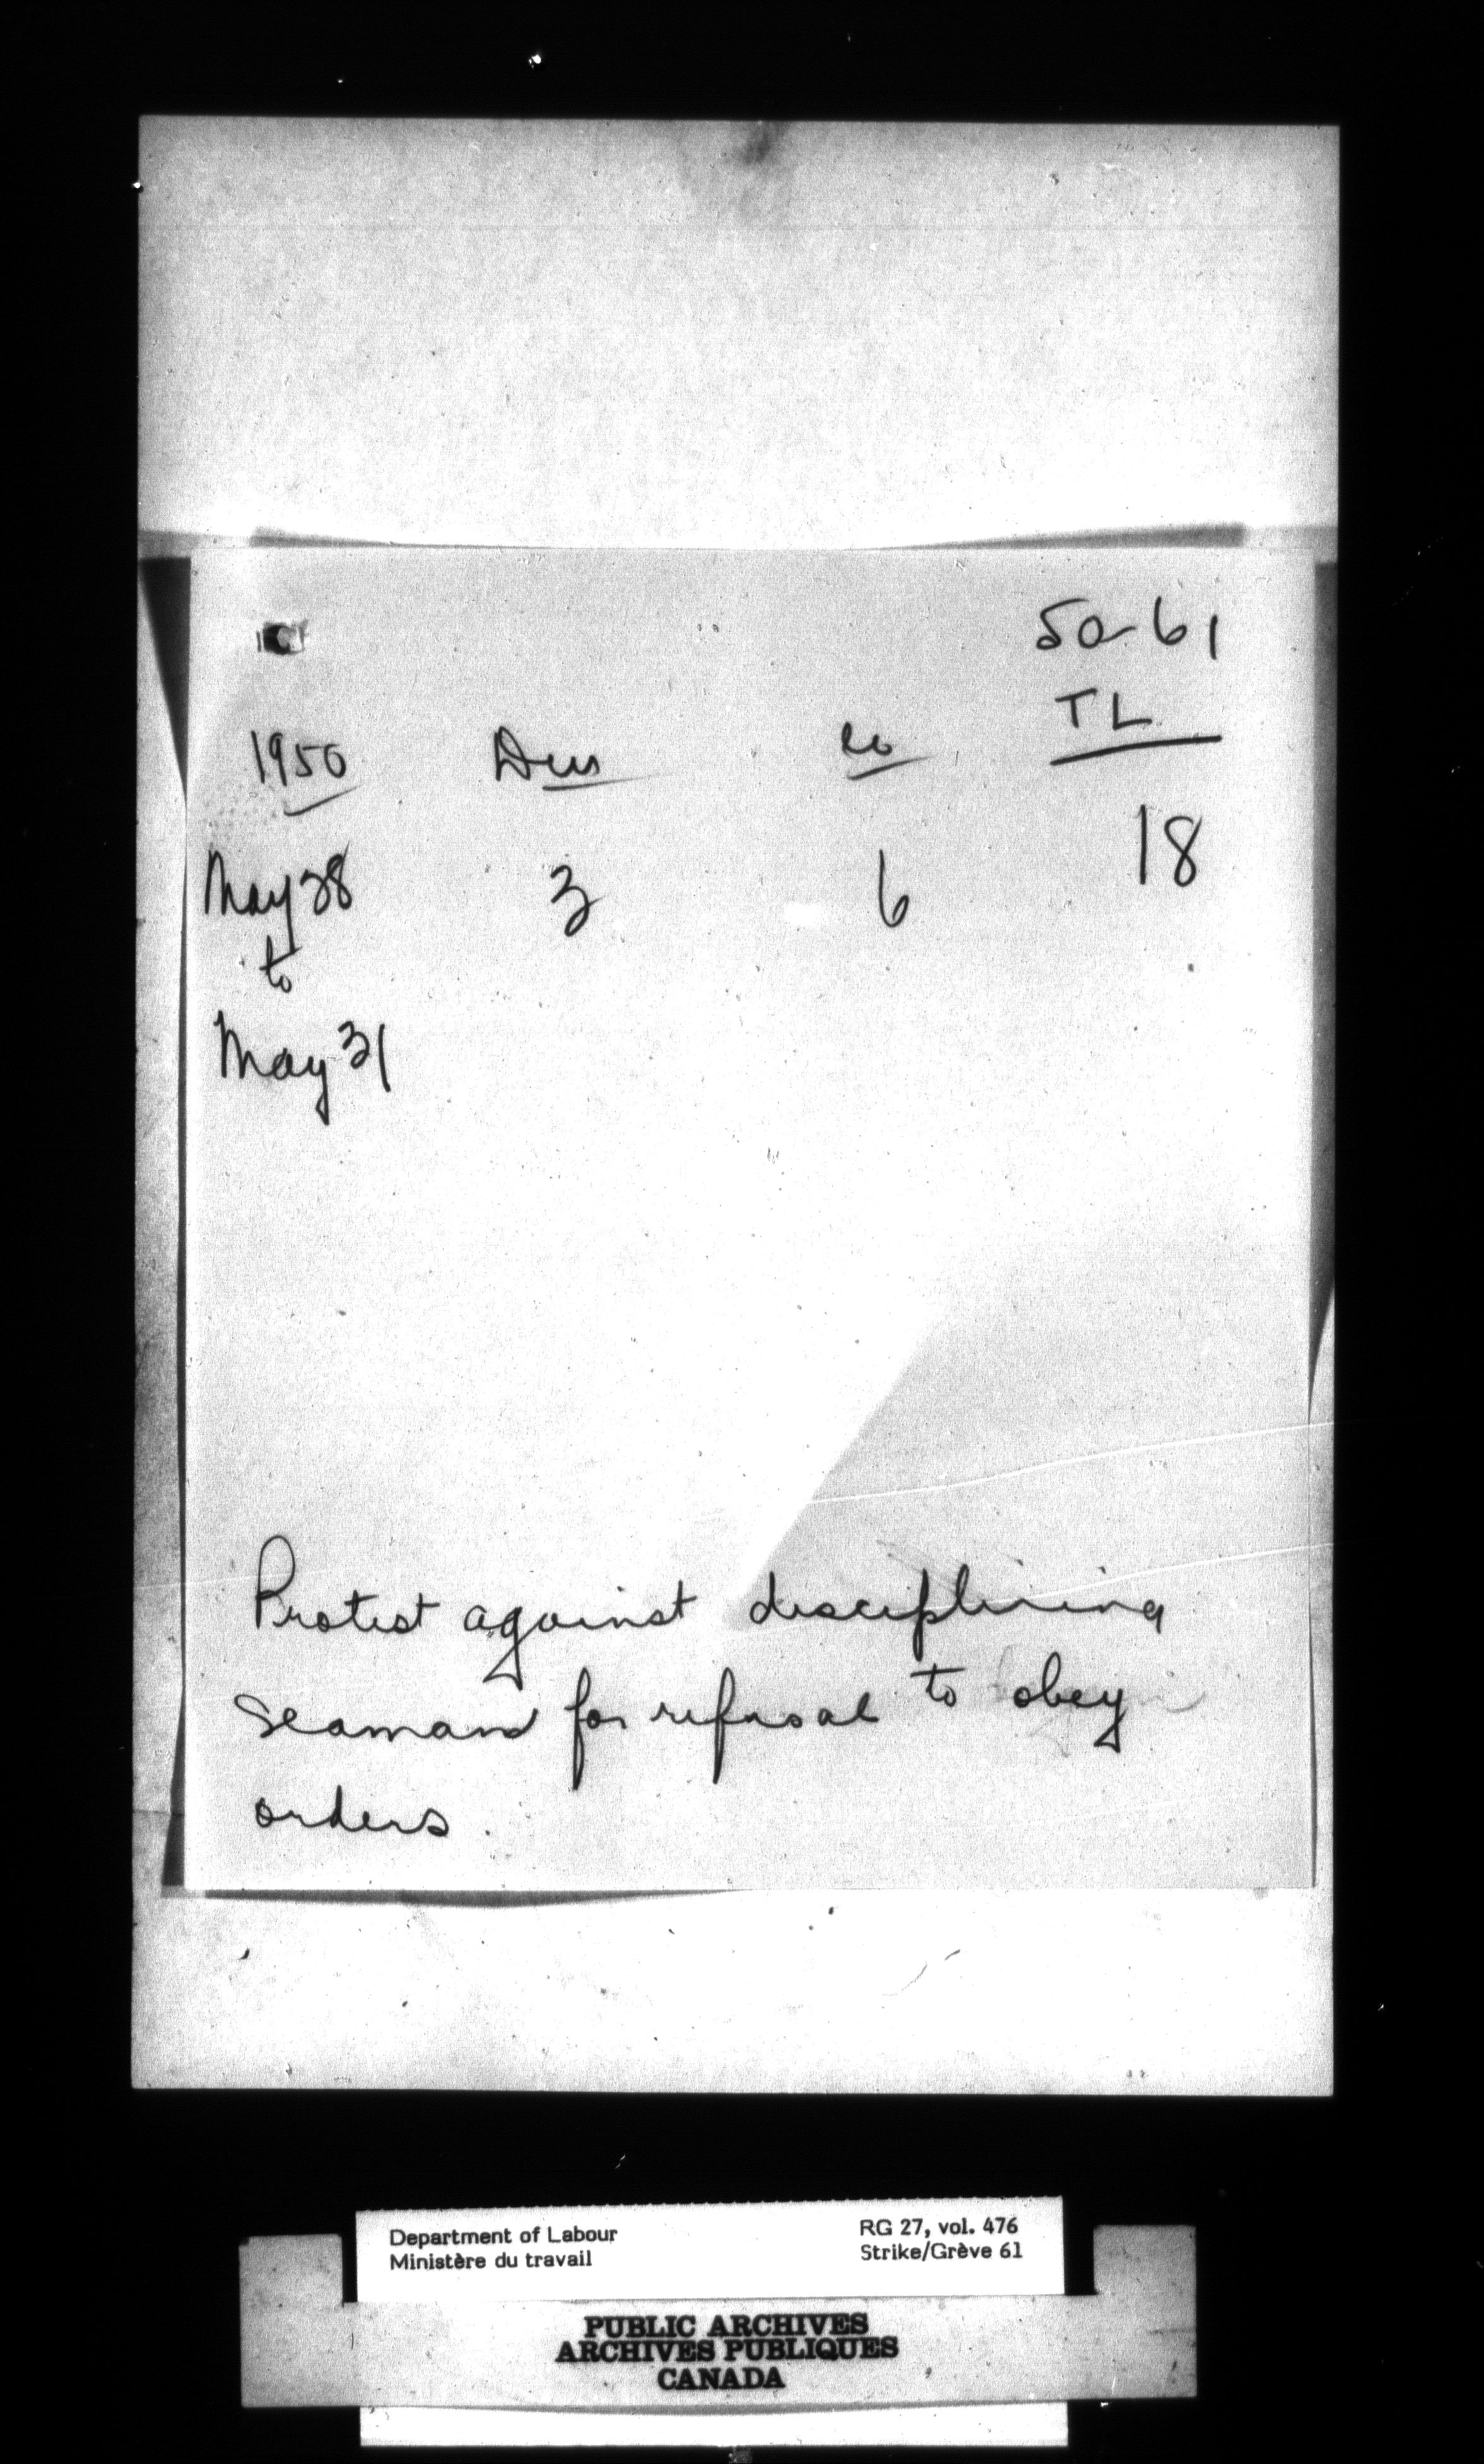 50-61
1950 Dur ee TL
May 28 3 6 18
to
May 31
Protest against disciplining
seaman for refusal to obey
orders.
Department of Labour RG 27, vol. 476
Ministère du travail Strike/Grève 61
PUBLIC ARCHIVES
ARCHIVES PUBLIQUES
CANADA